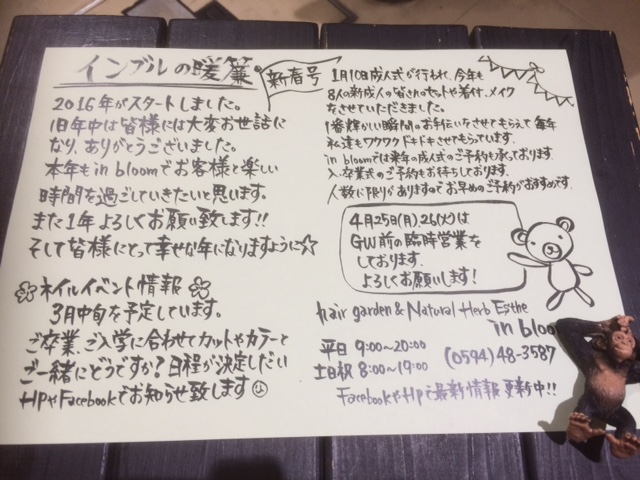 インブルの暖簾
新春号
2016年がスタートしました。
旧年中は皆様には大変お世話に
なり、ありがとうございました。
本年もin bloomでお客様と楽しい
時間を過ごしていきたいと思います。
また1年よろしくお願い致します!!
そして皆様にとって幸せな年になりますように☆
ネイルイベント情報
3月中旬を予定しています。
ご卒業、ご入学に合わせてカットやカラーと
ご一緒にどうですか?日程が決定しだい
HPやFacebookでお知らせ致します
1月10日成人式が行われ、今年も
8人の新成人の皆さんのセットや着付、メイク
をさせていただきました。
1番輝かしい瞬間のお手伝いをさせてもらえて毎年
私達もワクワクドキドキさせてもらっています。
in bloomでは来年の成人式のご予約も承っております。
入・卒業式のご予約もお待ちしております。
人数に限りがありますのでお早めのご予約がおすすめです。
4月25日(月)、26(火)は
GW前の臨時営業を
しております。
よろしくお願いします!
hair garden & Natural Herb Esthe
in bloo
平日 9:00~20:00
土日祝 8:00~19:00
(0594)48-3587
FacebookやHPで最新情報更新中!!